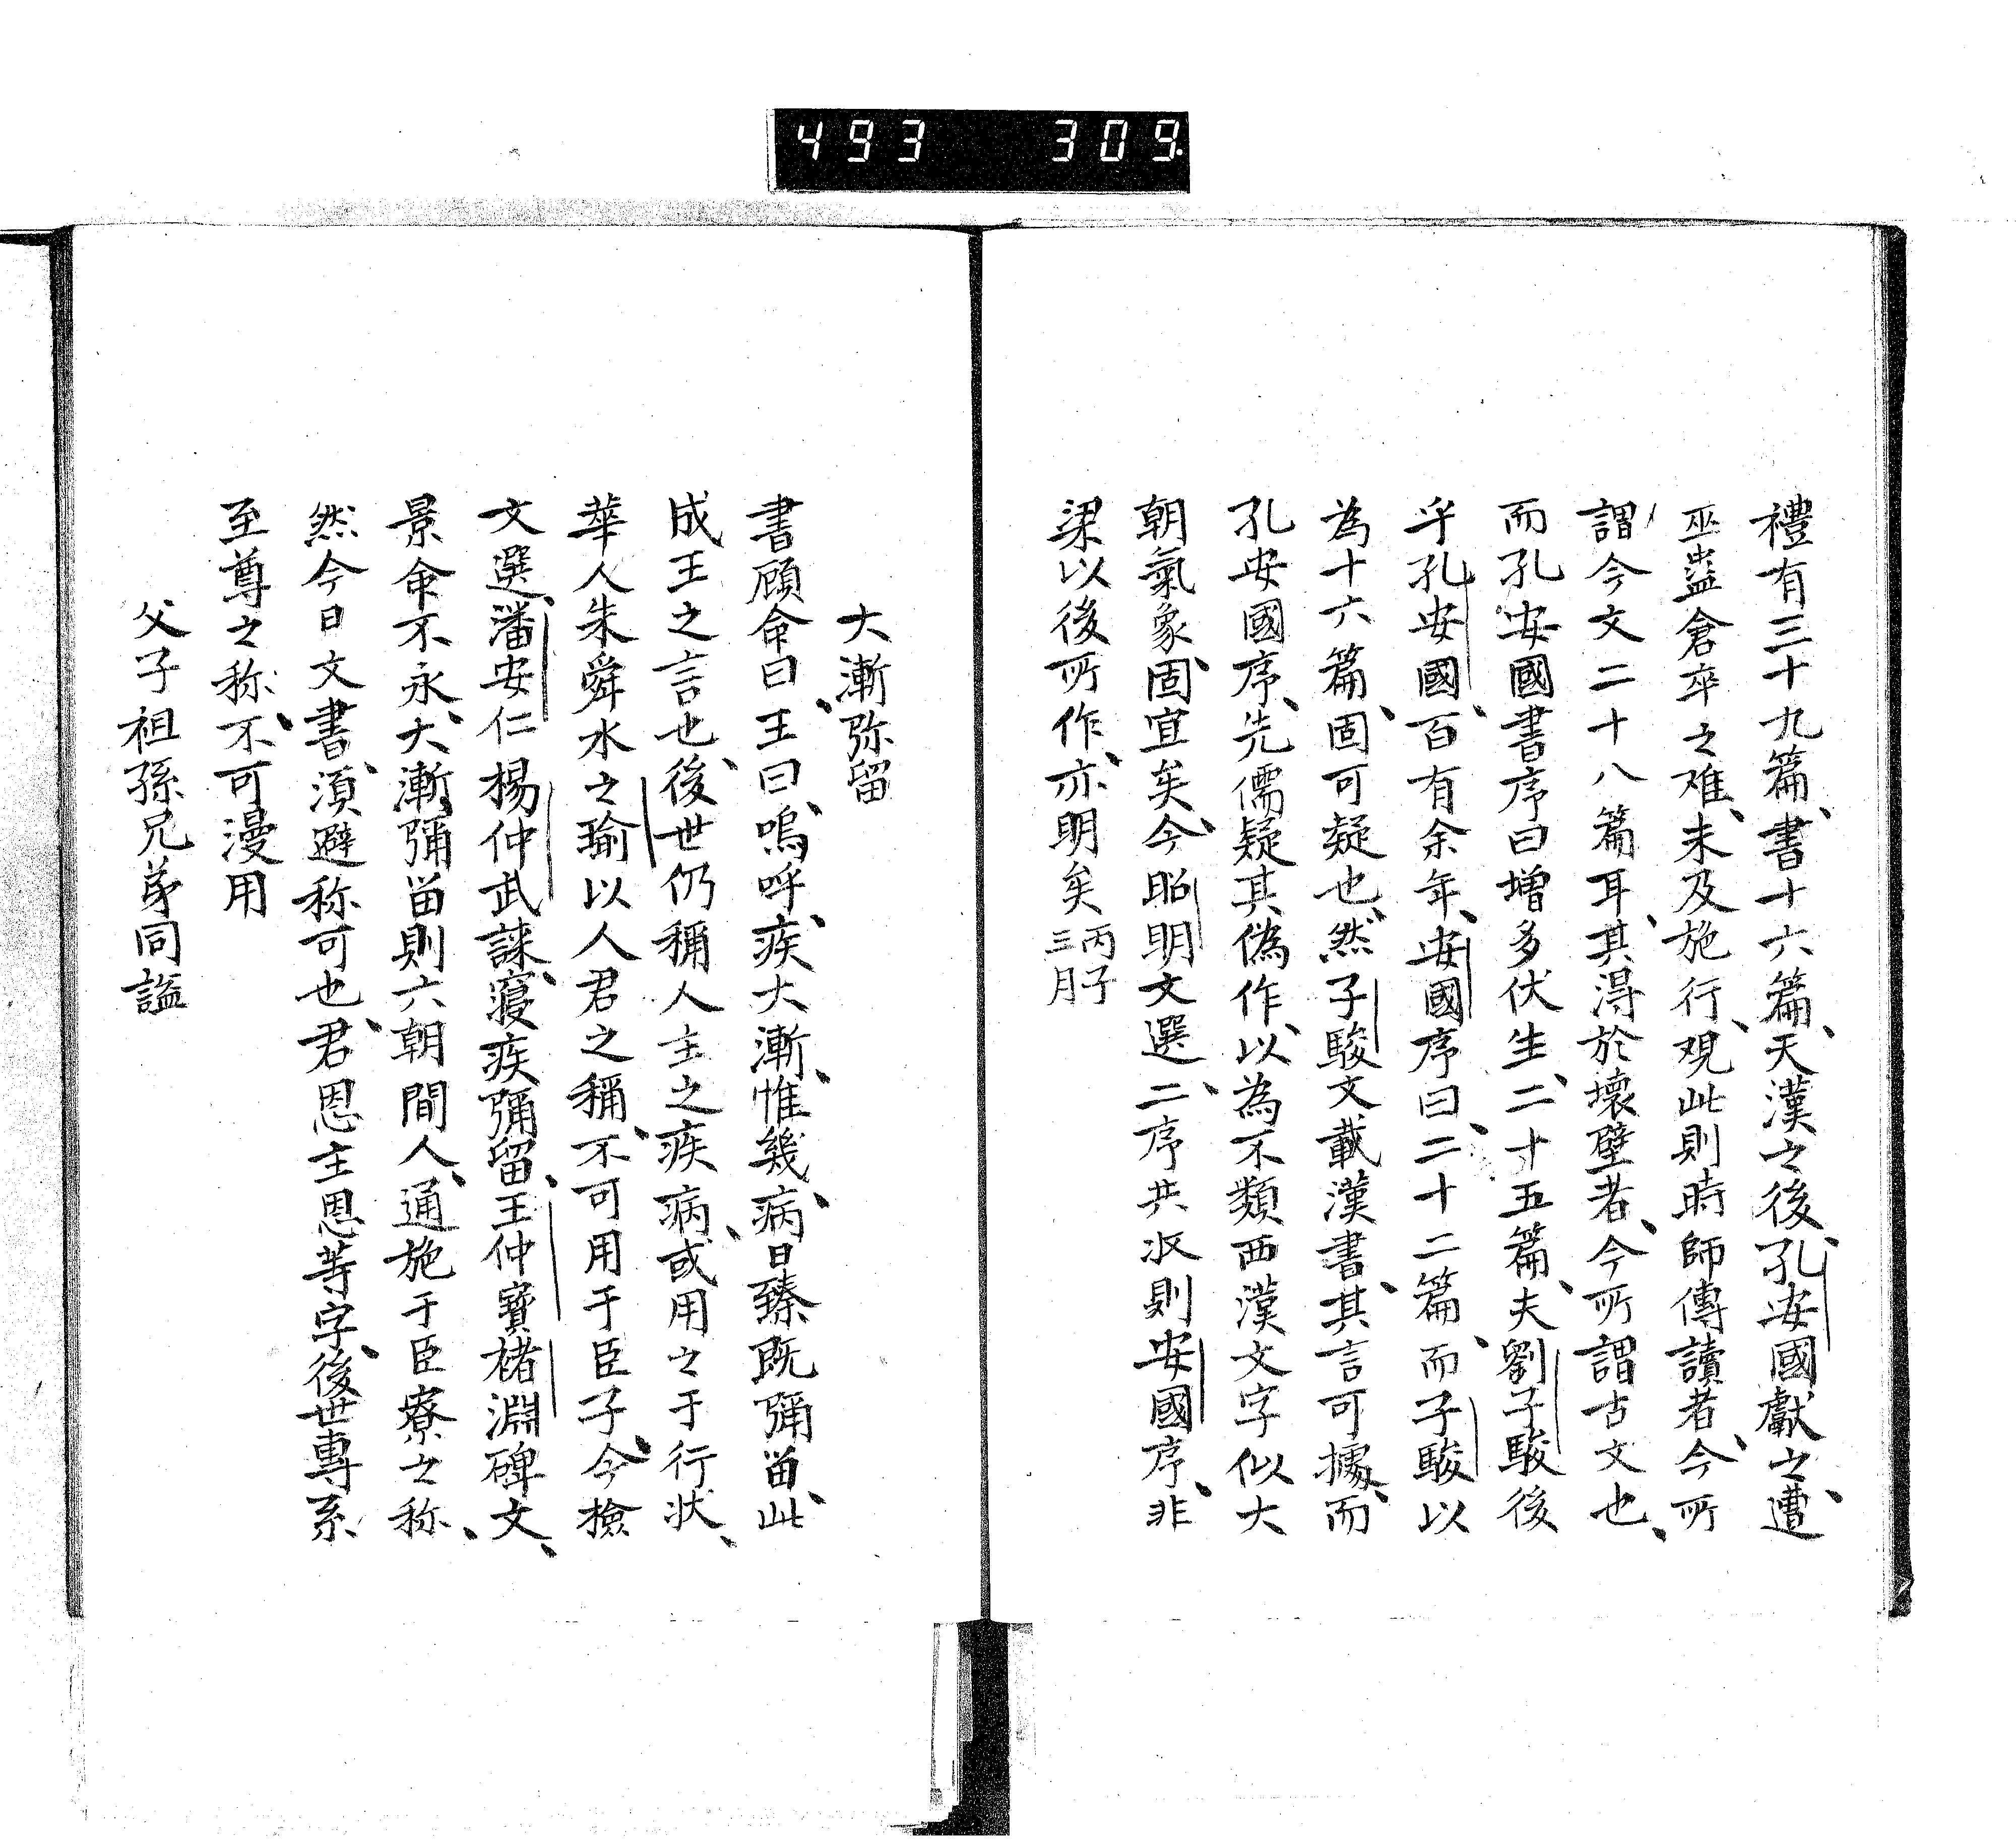 493 309.
禮有三十九篇、書十六篇、天漢之後、孔安國獻之、遭
巫蠱倉卒之难、未及施行、观此則時師傳讀者、今所
謂今文二十八篇耳、其淂於壊壁者、今所謂古文也、
而孔安國書序曰増多伏生、二十五篇、夫劉子駿後
乎孔安國、百有余年、安國序曰、二十二篇、而子駿以
為十六篇、固可疑也、然子駿文載漢書、其言可據、而
孔安國序、先儒疑其偽作、以為不類西漢文字似大
朝氣象、固宜矣、今昭明文選、二序共収則安國序、非
梁以後所作、亦明矣 丙子三月
大漸弥留
書顧命曰、王曰、嗚呼、疾大漸、惟幾、病日臻既彌畄、此
成王之言也、後世仍稱人主之疾病、或用之于行状、
華人朱舜水之瑜以人君之稱、不可用于臣子、今撿
文選、潘安仁楊仲武誄、寝疾彌留、王仲寳褚淵碑文、
景命不永、大漸彌畄則六朝間人、通施于臣寮之称、
然今日文書、湏避称可也、君恩主恩等字、後世專系
至尊之称、不可漫用
父子祖孫兄弟同謚